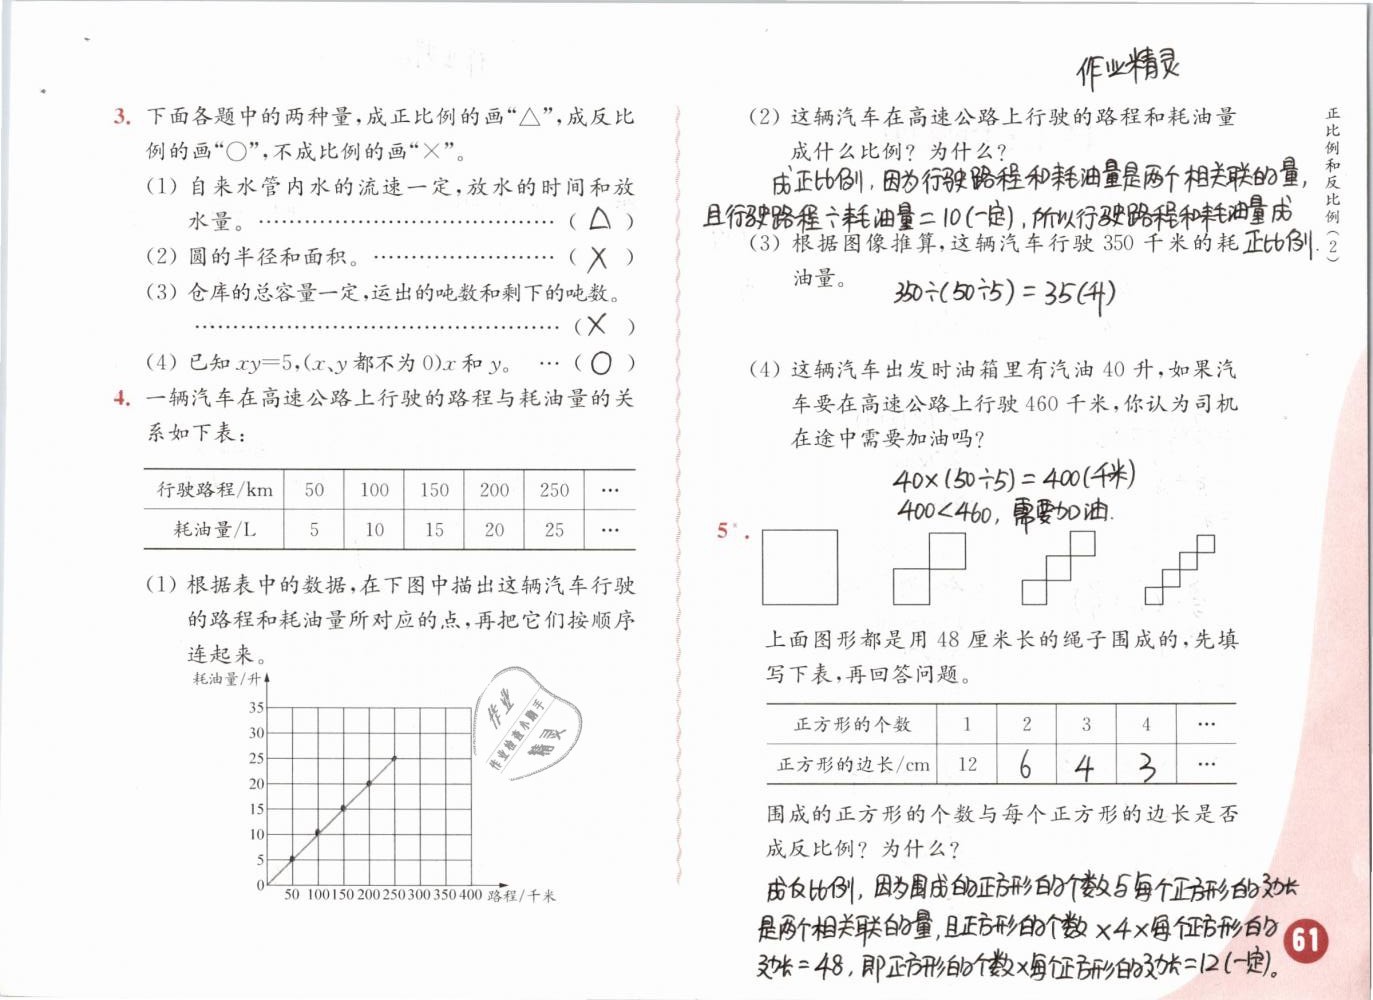 3. 下面各题中的两种量,成正比例的画“△”,成反比
例的画“○”,不成比例的画“×”。
(1) 自来水管内水的流速一定,放水的时间和放
水量。 …………………………………… ( △ )
(2) 圆的半径和面积。 …………………… ( × )
(3) 仓库的总容量一定,运出的吨数和剩下的吨数。
…………………………………………… ( × )
(4) 已知 xy=5,(x、y 都不为 0)x 和 y。 … ( ○ )
4. 一辆汽车在高速公路上行驶的路程与耗油量的关
系如下表:
行驶路程/km 50 100 150 200 250 …
耗油量/L 5 10 15 20 25 …
(1) 根据表中的数据,在下图中描出这辆汽车行驶
的路程和耗油量所对应的点,再把它们按顺序
连起来。
耗油量/升
35
30
25
20
15
10
5
0
50 100 150 200 250 300 350 400 路程/千米
作业
作业检查小助手
精灵
作业精灵
(2) 这辆汽车在高速公路上行驶的路程和耗油量
成什么比例? 为什么?
成正比例, 因为行驶路程和耗油量是两个相关联的量,
且行驶路程÷耗油量=10(一定), 所以行驶路程和耗油量成
正比例.
(3) 根据图像推算,这辆汽车行驶 350 千米的耗
油量。
350÷(50÷5)=35(升)
(4) 这辆汽车出发时油箱里有汽油 40 升,如果汽
车要在高速公路上行驶 460 千米,你认为司机
在途中需要加油吗?
40×(50÷5)=400(千米)
400<460, 需要加油.
5*.
上面图形都是用 48 厘米长的绳子围成的,先填
写下表,再回答问题。
正方形的个数 1 2 3 4 …
正方形的边长/cm 12 6 4 3 …
围成的正方形的个数与每个正方形的边长是否
成反比例? 为什么?
成反比例, 因为围成的正方形的个数与每个正方形的边长
是两个相关联的量, 且正方形的个数×4×每个正方形的
边长=48, 即正方形的个数×每个正方形的边长=12(一定)。
正比例和反比例(2)
61